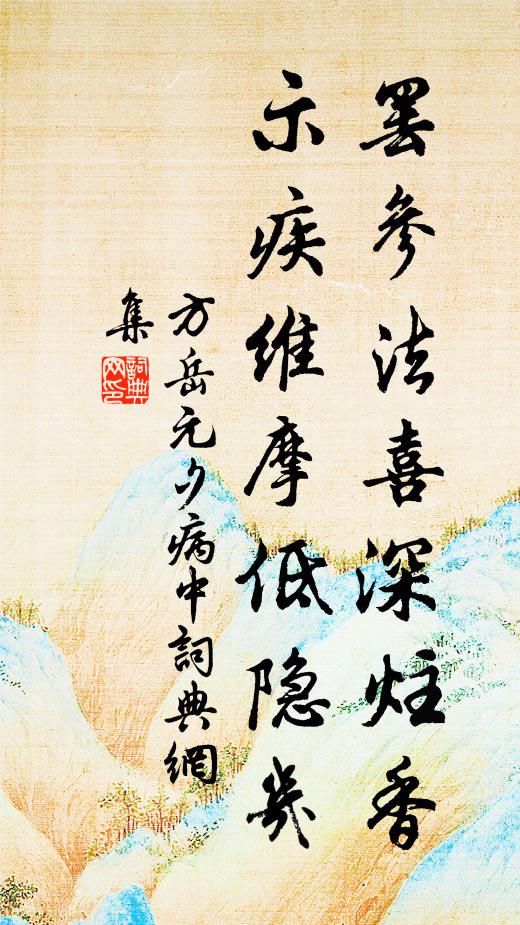 罢參法喜深炷香
示疾維摩低隐幾
方岳元夕病中詞典網
集
詞典网印